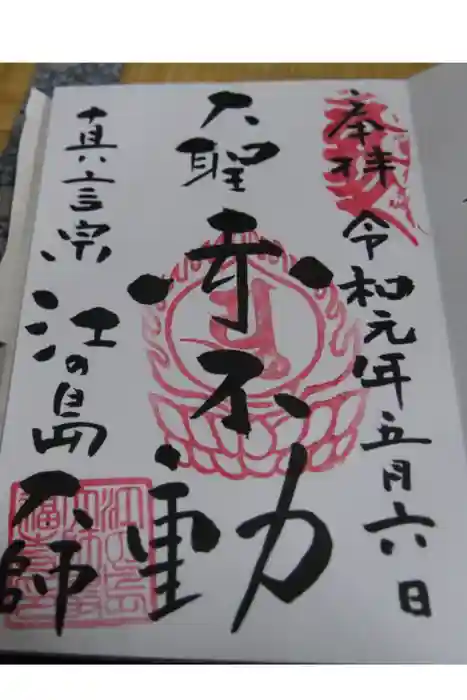 奉拝 令和元年五月六日
大聖赤不動
真言宗 江の島大師